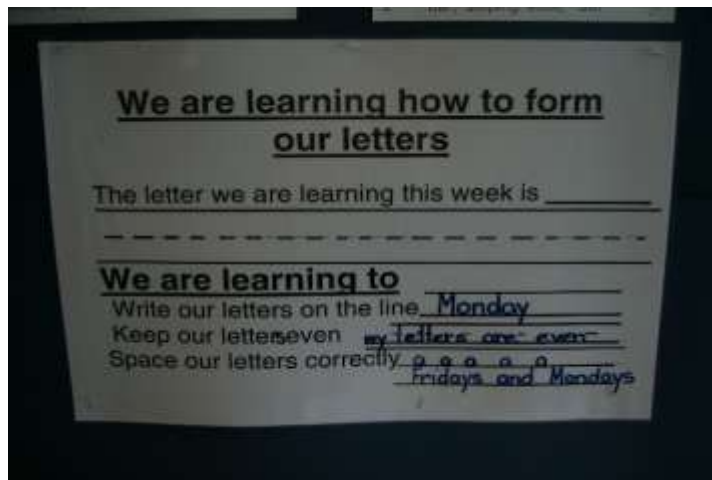 We are learning how to form
our letters
The letter we are learning this week is
We are learning to
Write our letters on the line Monday
Keep our letters even my letters are even
Space our letters correctly a a a a a
Fridays and Mondays